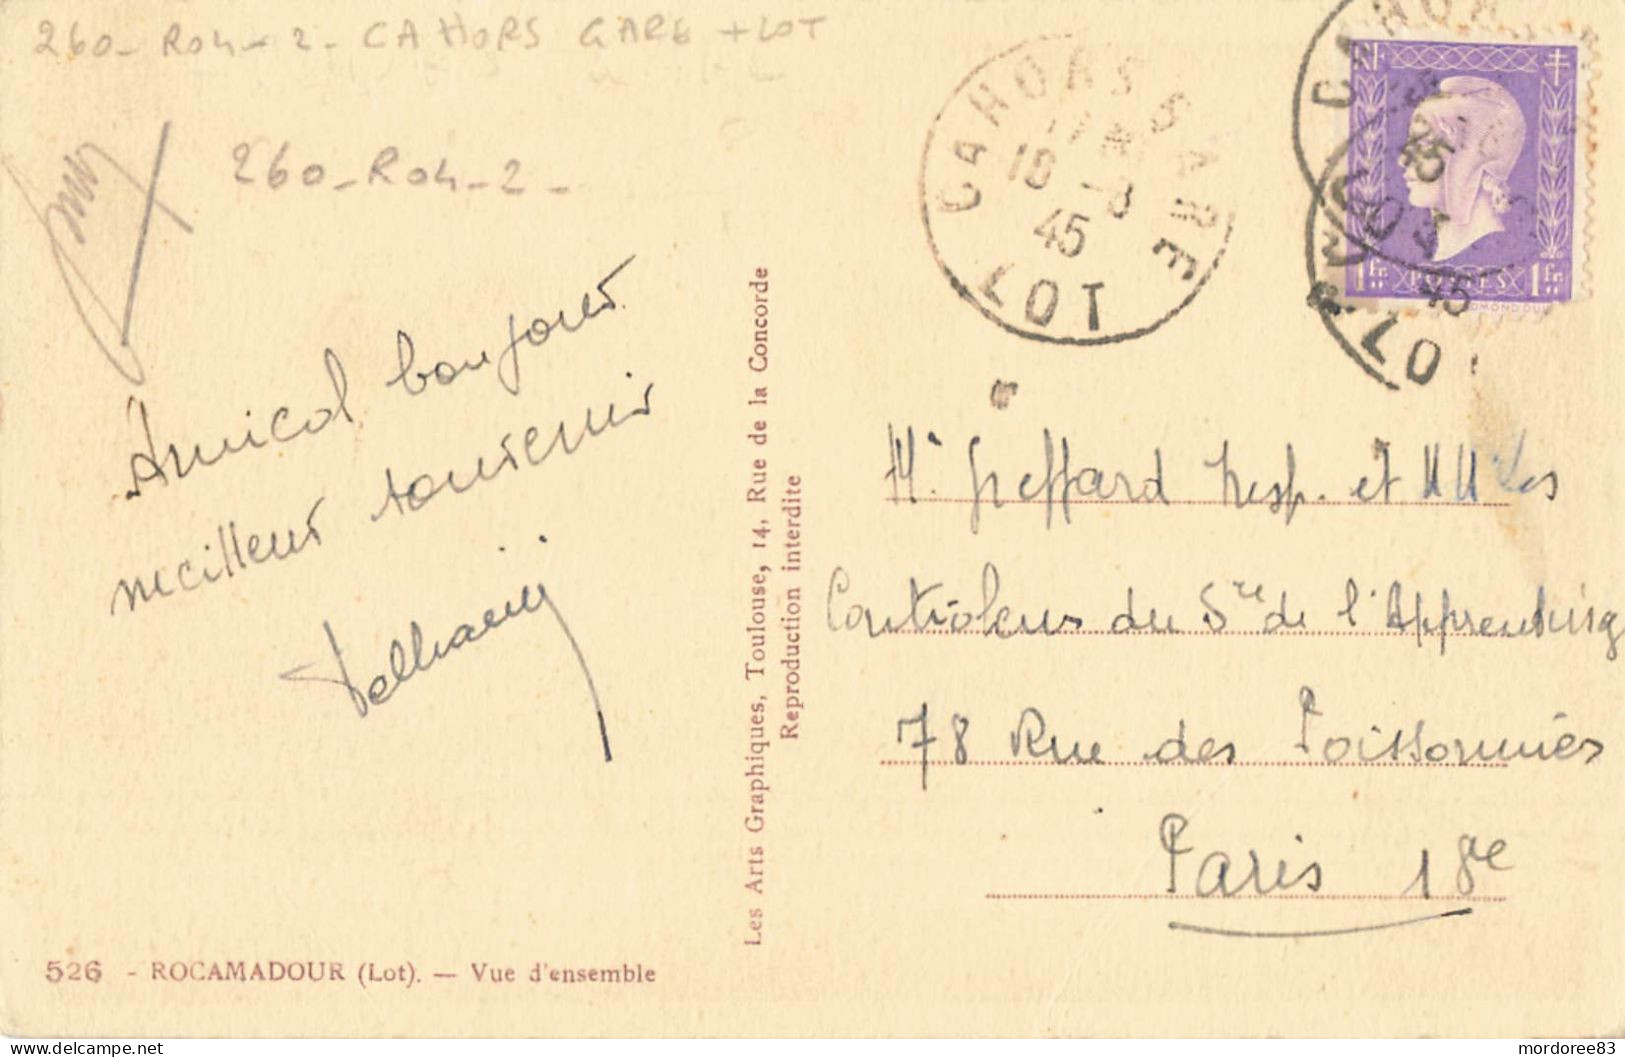 260-R04-2- CAHORS GARE + LOT
260-R04-2-
Amical bonjour
meilleur souvenir
Les Arts Graphiques, Toulouse, 14, Rue de la Concorde
Reproduction interdite
CAHORS GARE
18 -8
45
LOT
CAHORS
45
LOT
RF
1 fr. POSTES 1 fr.
Mr Greffard Insp. et MM les
Contrôleurs du Sce de l'Apprentissg
78 Rue des Poissonniers
Paris 18e
526 - ROCAMADOUR (Lot). — Vue d'ensemble
mordoree83